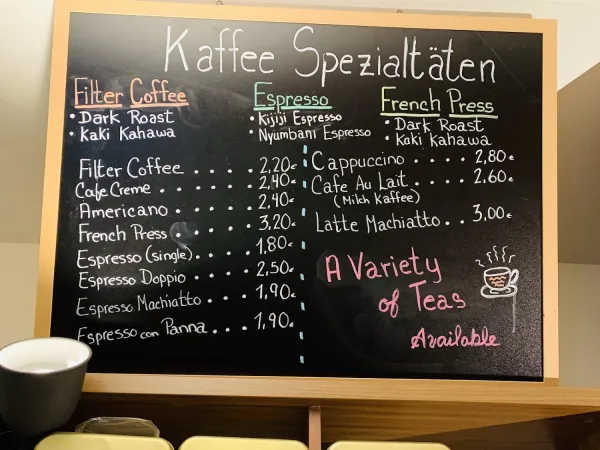 Kaffee Spezialtäten
Filter Coffee
• Dark Roast
• Kaki Kahawa
Espresso
• Kijiji Espresso
• Nyumbani Espresso
French Press
• Dark Roast
• Kaki Kahawa
Filter Coffee . . . . . 2,20€
Cafe Creme . . . . . . 2,40€
Americano . . . . . . 2,40€
French Press . . . . . 3,20€
Espresso (single) . . . . 1,80€
Espresso Doppio . . . . 2,50€
Espresso Machiatto . . . . 1,90€
Espresso con Panna . . . 1,90€
Cappuccino . . . . 2,80€
Cafe Au Lait . . . . 2,60€
(Milch Kaffee)
Latte Machiatto . . 3,00€
A Variety
of Teas
Available